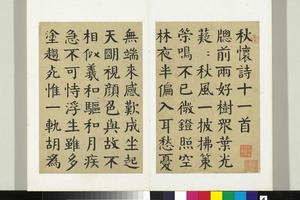 秋懷詩十一首
牕前兩好樹眾葉光
薿〻秋風一披拂策
策鳴不已微鐙照空
牀夜半偏入耳愁憂
無端來感歎成坐起
天明視顏色與故不
相似羲和驅日月疾
急不可恃浮生雖多
塗趨死惟一軌胡為